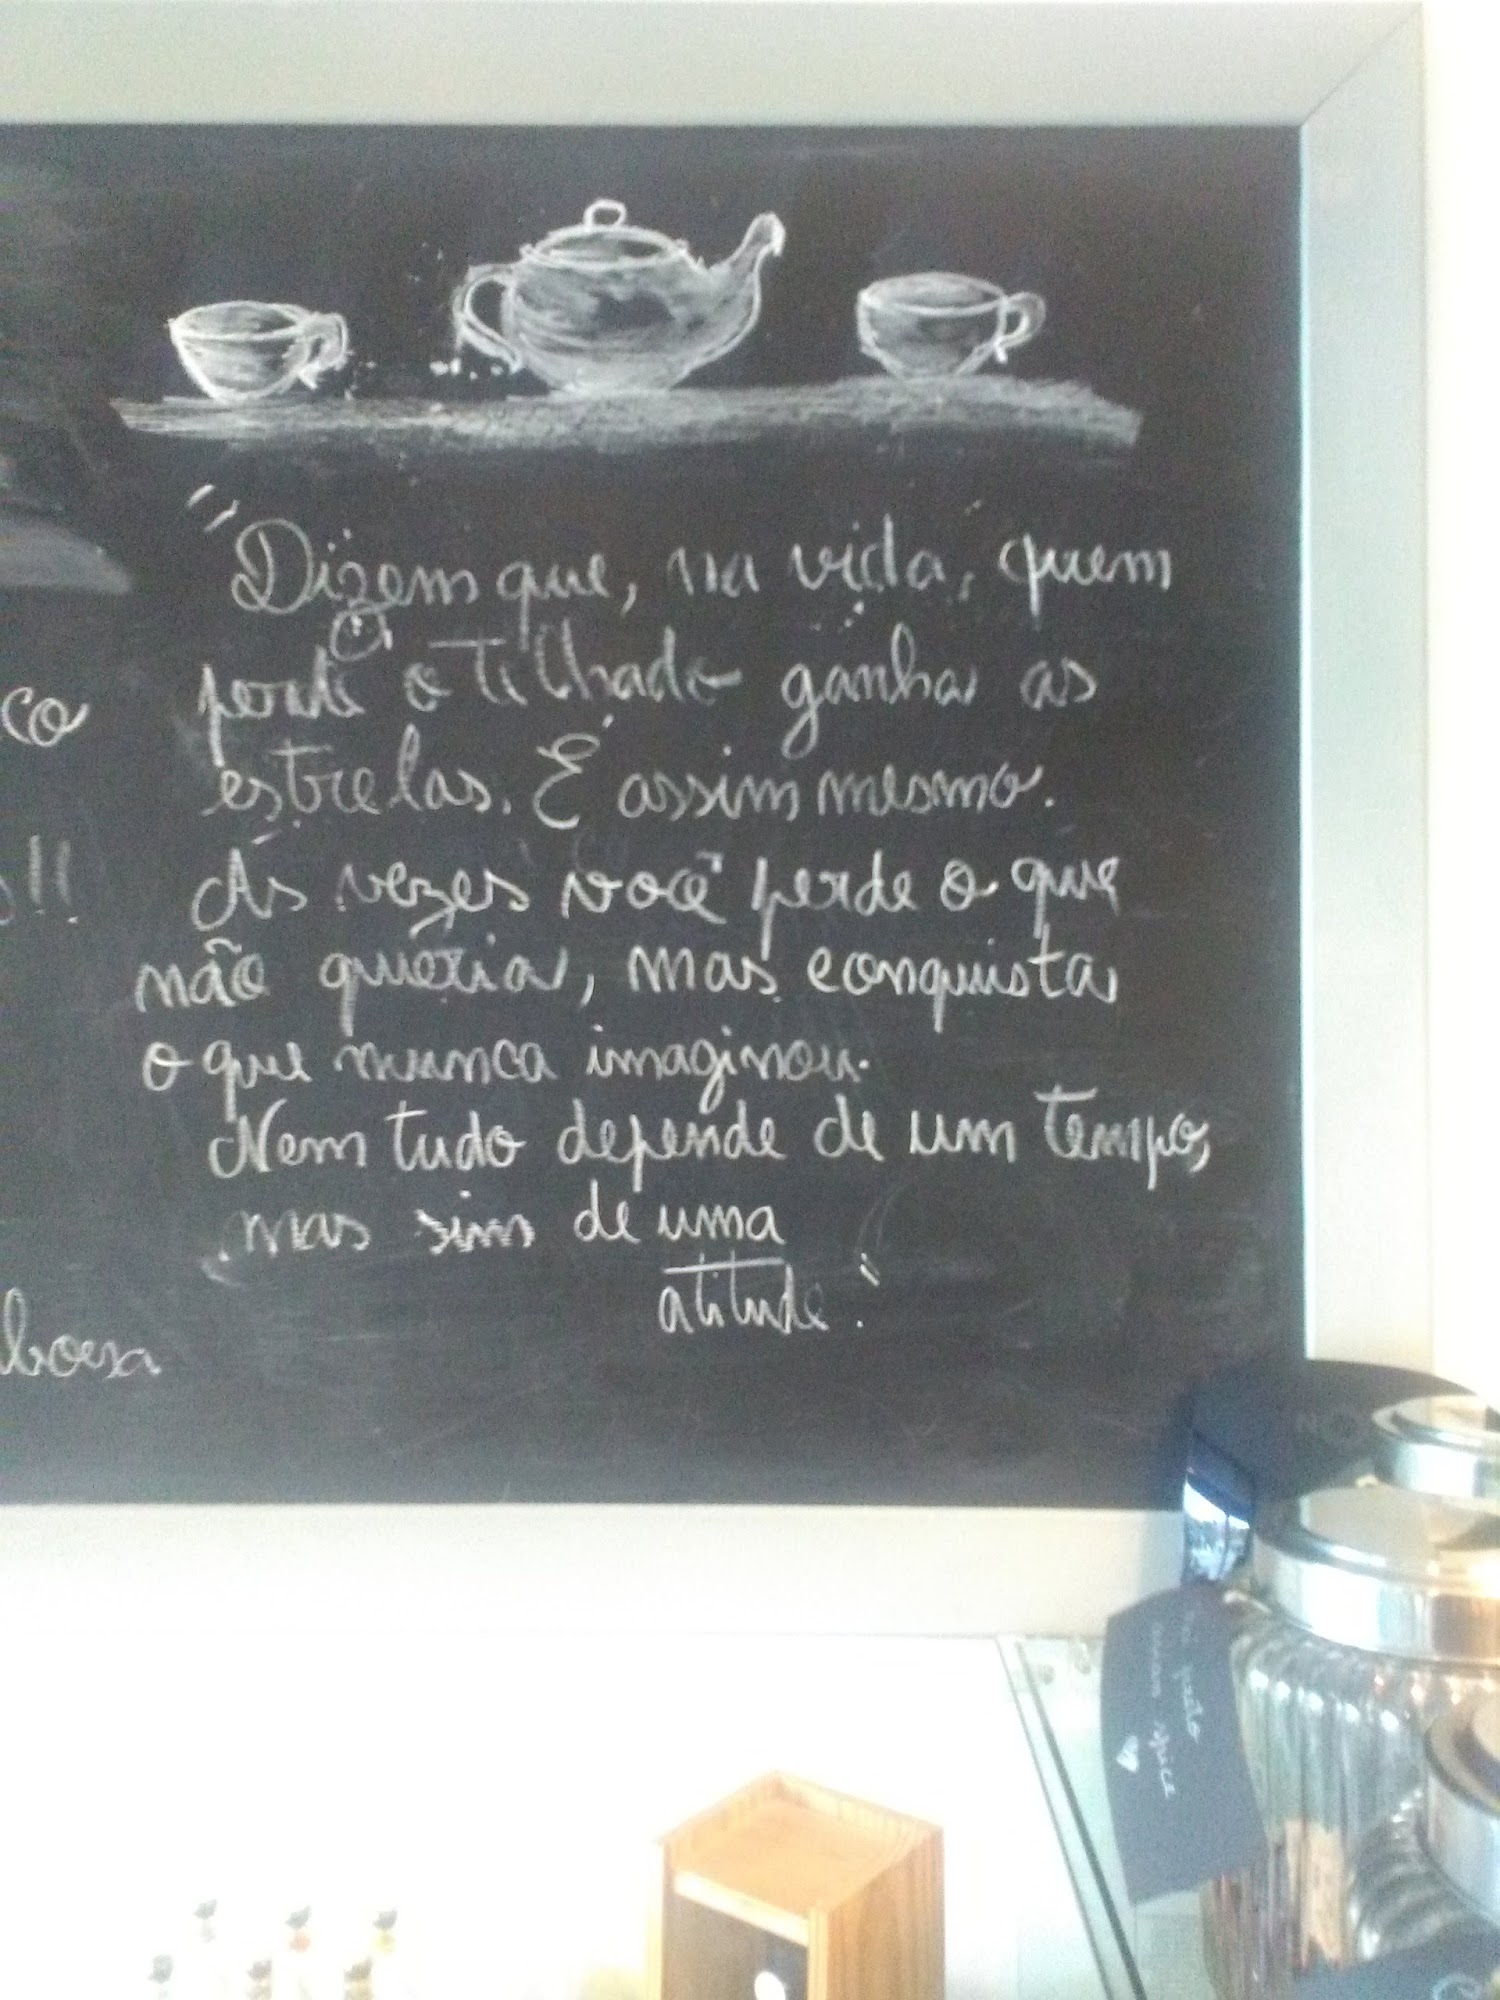 "Dizem que, na vida, quem
perde o telhado ganha as
estrelas. É assim mesmo.
Às vezes você perde o que
não queria, mas conquista
o que nunca imaginou.
Nem tudo depende de um tempo,
mas sim de uma
atitude."
ço
!!
spice